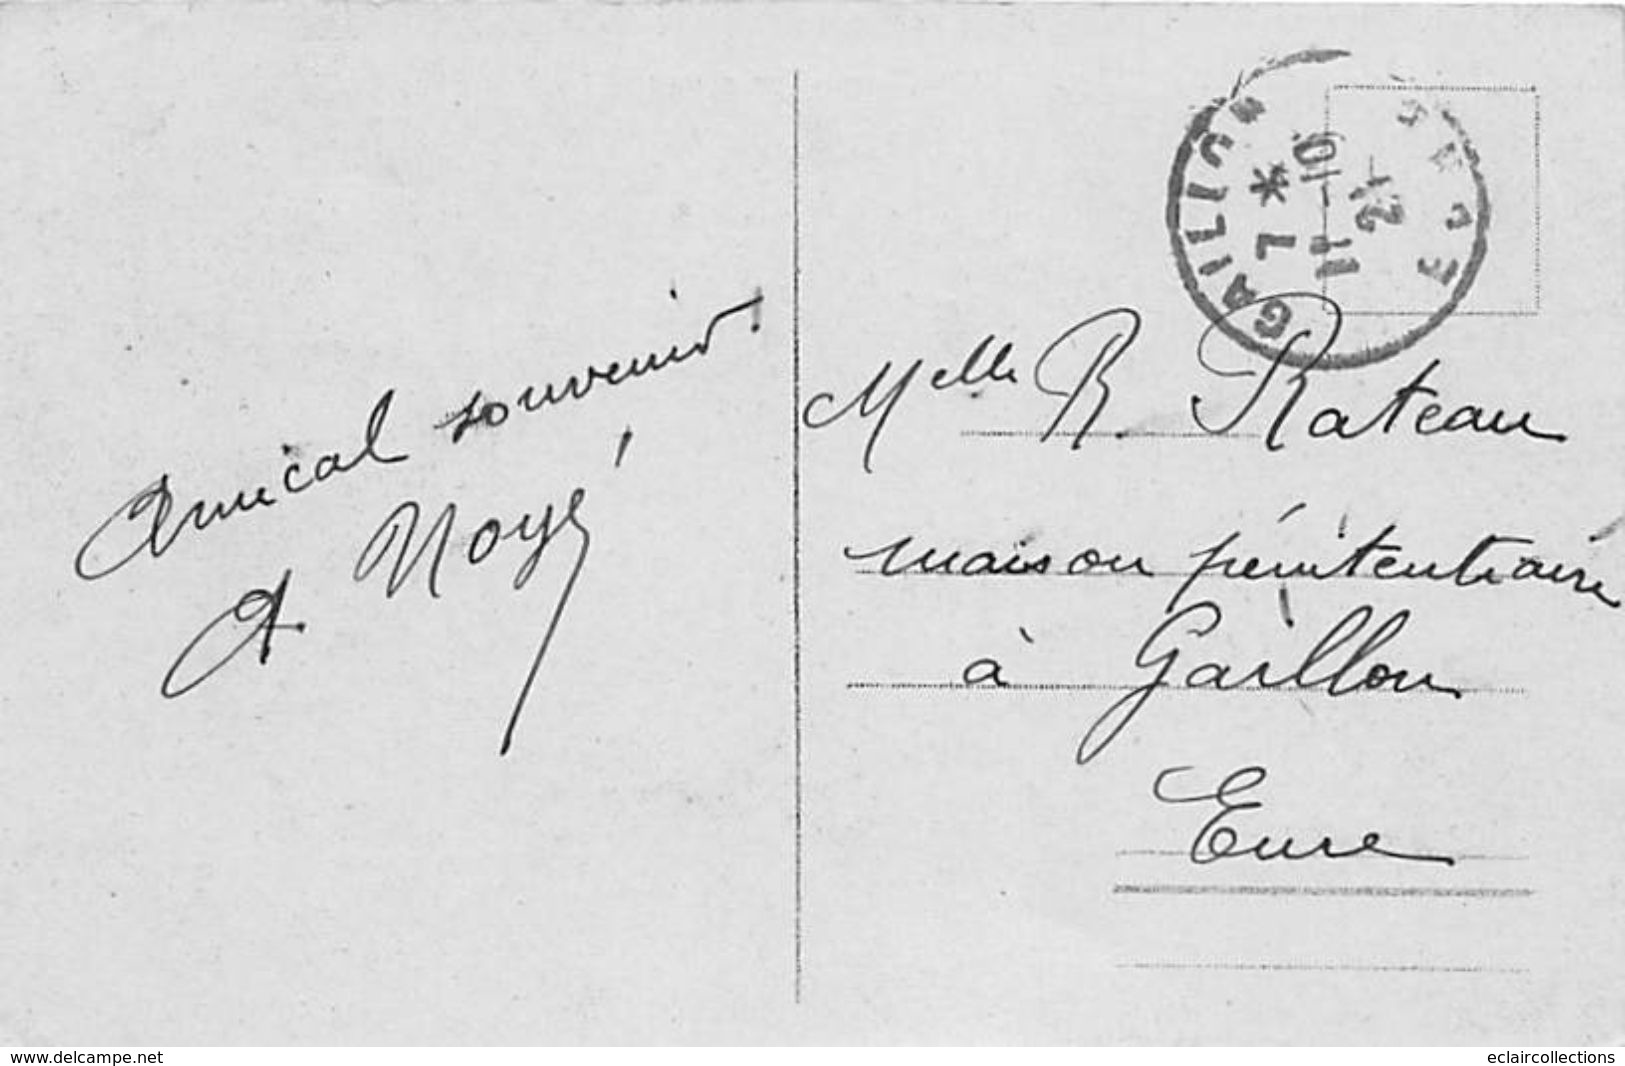 Amical souvenir.
A Noyé
GAILLON
* 7
11-10
21
Melle R. Rateau
maison pénitentiaire
à Gaillon
Eure
www.delcampe.net
eclaircollections